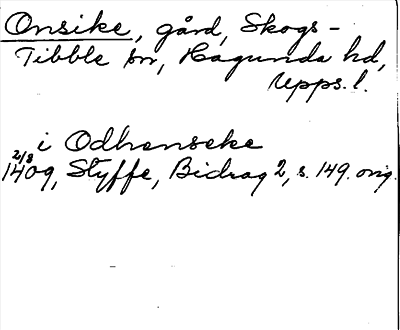 Onsike, gård, Skogs-
Tibble sn, Hagunda hd,
Upps. l.
i Odhenseke
2/8
1409, Styffe, Bidrag 2, s. 149. orig.